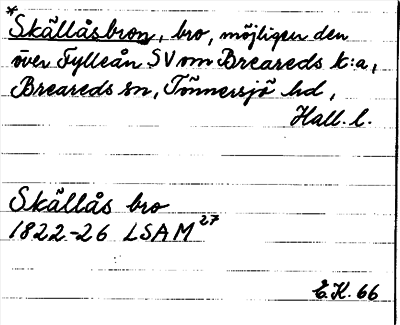 *
Skällåsbron, bro, möjligen den
över Fylleån SV om Breareds k:a,
Breareds sn, Tönnersjö hd,
Hall. l.
Skällås bro
1822-26 LSAM 27
E.K. 66